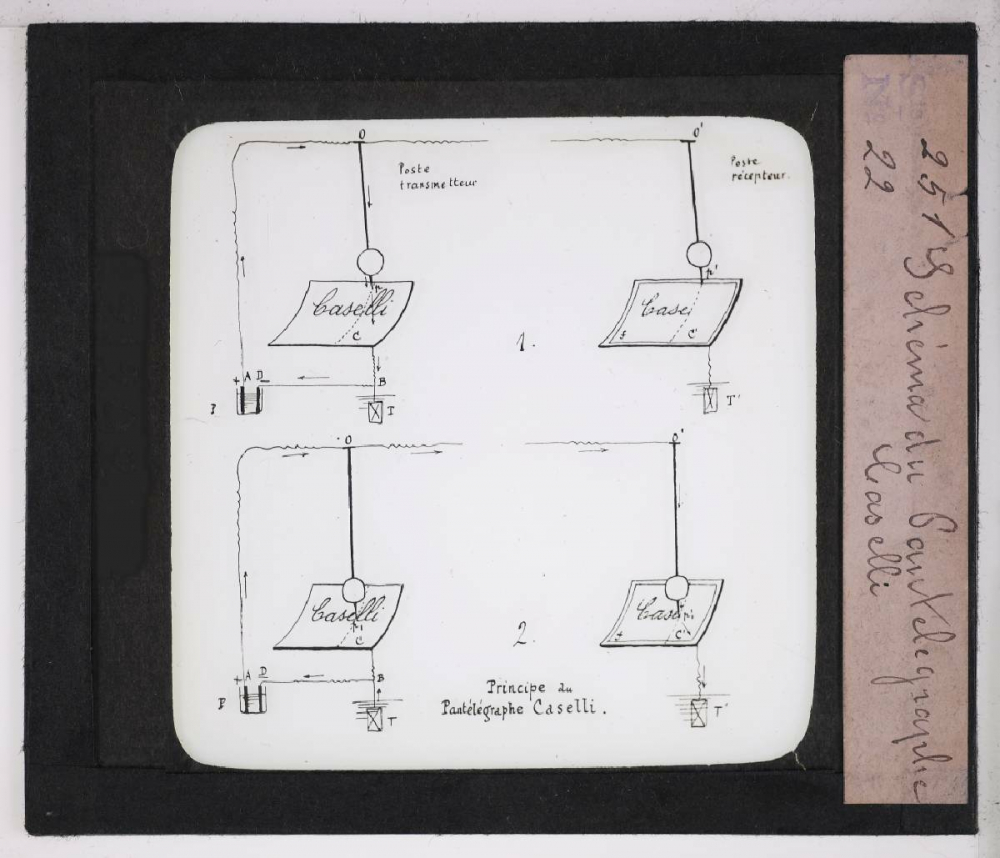 O
O'
Poste
transmetteur
Poste
récepteur.
Caselli
C
Case
C'
1.
+ A D -
B
T
T'
O
O'
Caselli
C
Case
C'
2.
+ A D
B
P
T
T'
Principe du
Pantélégraphe Caselli.
N°
251 Schéma du Pantélégraphe
22 Caselli